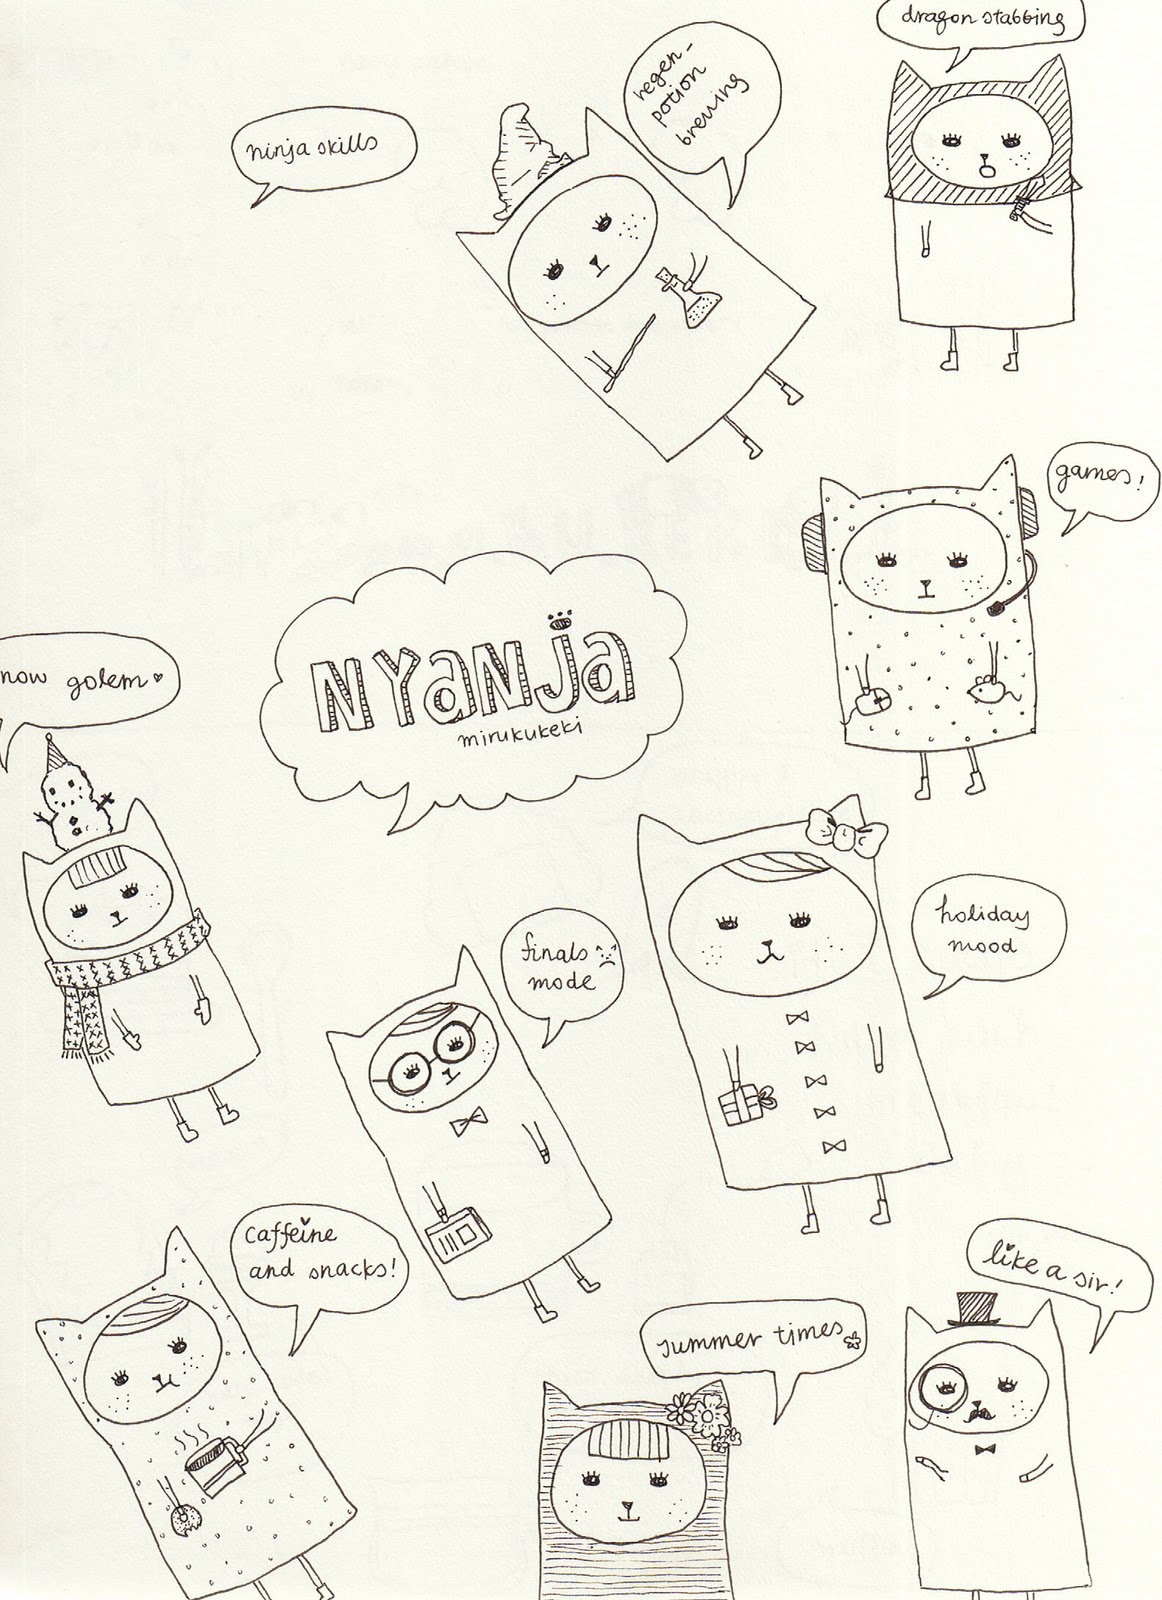 dragon stabbing
regen-
potion
brewing
ninja skills
games!
NYANJA
mirukukeki
now golem
holiday
mood
finals
mode
caffeine
and snacks!
like a sir!
summer times